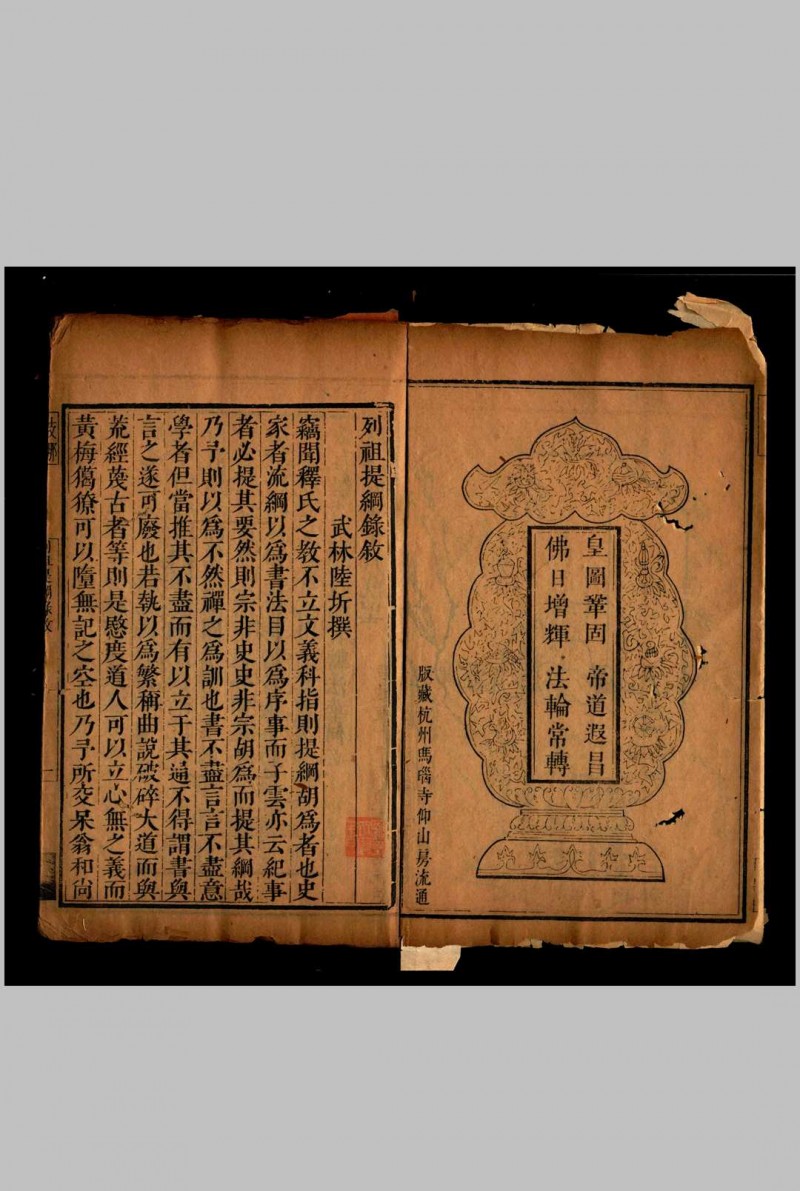 皇圖鞏固 帝道遐昌
佛日增輝 法輪常轉
版藏杭州瑪瑙寺仰山房流通
列祖提綱錄敘
武林陸圻撰
竊聞釋氏之教不立文義科指則提綱胡為者也史
家者流綱以為書法目以為序事而子雲亦云紀事
者必提其要然則宗非史史非宗胡為而提其綱哉
乃予則以為不然禪之為訓也書不盡言言不盡意
學者但當推其不盡而有以立于其通不得謂書與
言之遂可廢也若執以為繁稱曲說破碎大道而與
荒經蔑古者等則是愍度道人可以立心無之義而
黃梅獦獠可以墮無記之空也乃予所交呆翁和尚